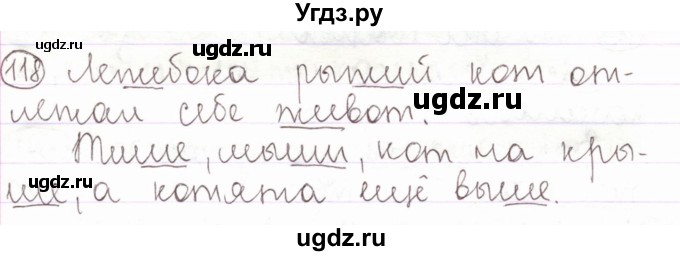 Угдз.ру
ugdz.ru ugdz.ru
118 Лежебока рыжий кот от-
ugdz.ru
лежал себе живот.
ugdz.ru
Тише, мыши, кот на кры-
ше, а котята ещё выше.
ugdz.ru ugdz.ru
ugdz.ru